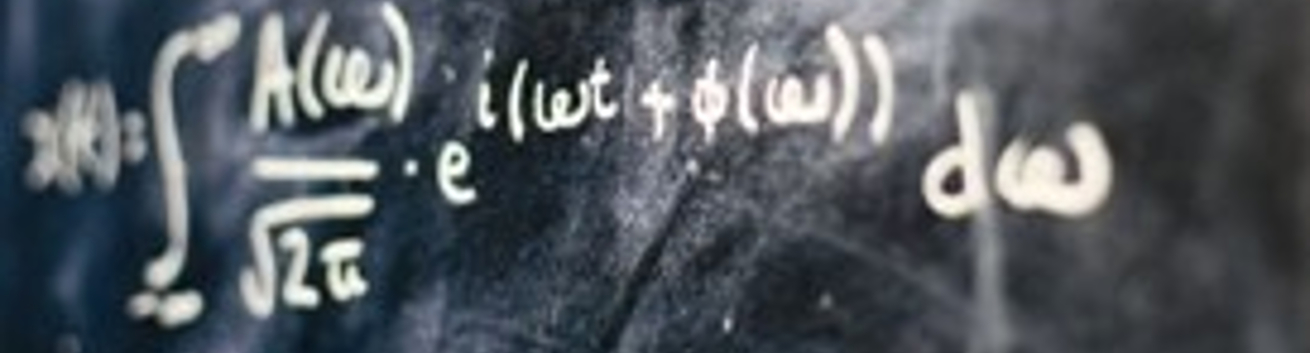 x(t) = ∫_{-∞}^{∞} A(ω)/√2π · e^{i(ωt + φ(ω))} dω